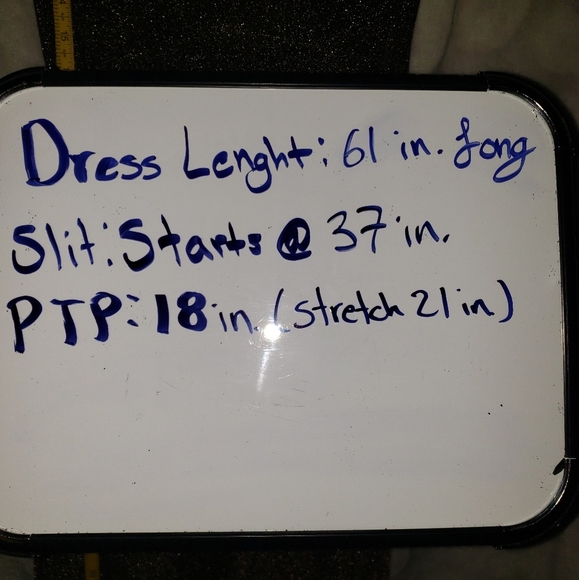 Dress Lenght: 61 in. Long
Slit: Starts @ 37 in.
PTP: 18 in. (stretch 21 in)